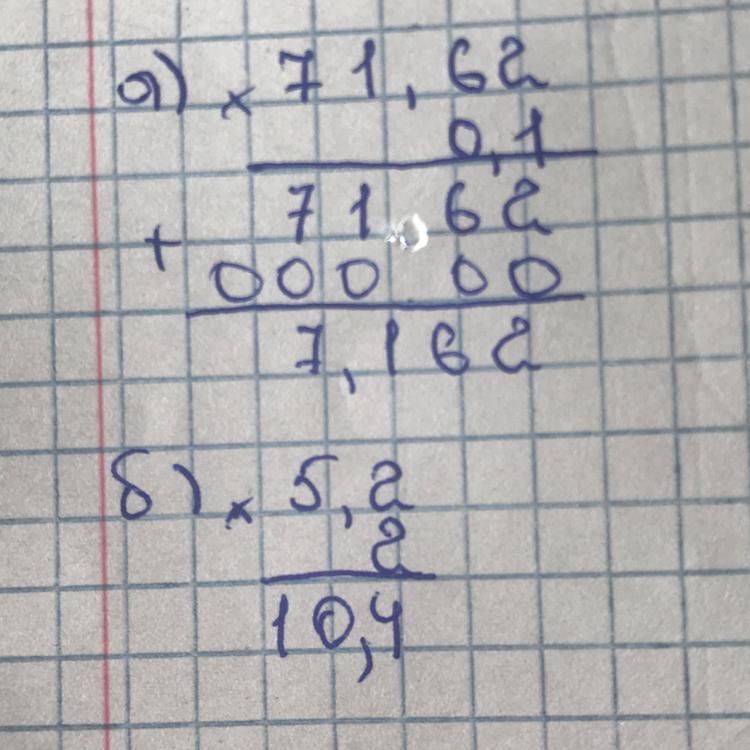 а) × 71,62
0,1
71 62
+
000 00
7,162
б) × 5,2
2
10,4